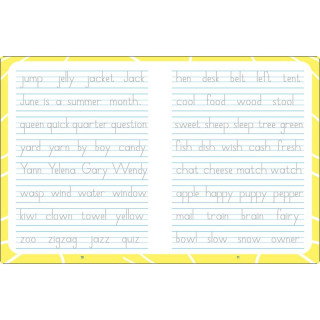 jump jelly jacket Jack
June is a summer month.
queen quick quarter question
yard yarn by boy candy
Yann Yelena Gary Wendy
wasp wind water window
kiwi clown towel yellow
zoo zigzag jazz quiz
hen desk belt left tent
cool food wood stool
sweet sheep sleep tree green
fish dish wish cash fresh
chat cheese match watch
apple happy puppy pepper
mail train brain fairy
bowl slow snow owner